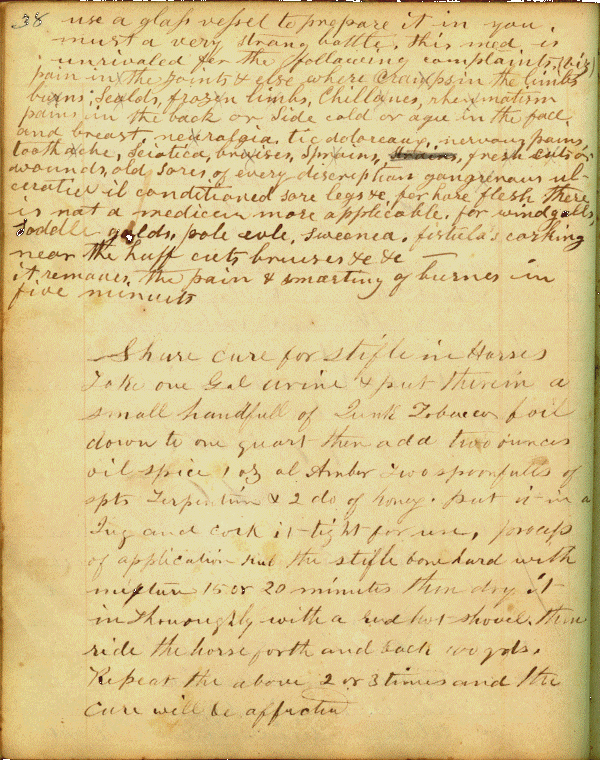 38 use a glass vessel to prepare it in you
must a very strong bottle. this med is
unrivaled for the following complaints. (viz)
pain in the joints & else where Cramps in the limbs
burns, Scalds, frozen limbs, Chillanes, rheumatism
pains in the back or side cold or ague in the face
and breast, neuralgia, tic doloreaux, nervous pains,
tooth ache, Sciatica, bruises, sprains, fresh cuts or
wounds, old sores of every description gangrenous ul-
cerative il conditioned sore legs &c, for hare flesh there
is not a medicien more applicable. for windgalls,
Saddle galds, pole evle, sweenea, fistula's corking
near the huff cuts bruises &c &c
it removes the pain & smarting of burnes in
five minuits
Shure cure for Stifle in Horses
Take one Gal urine & put therein a
small handfull of Junk Tobacco foil
down to one quart then add two ounces
oil spice 1 oz ol Amber Two spoonfulls of
spts Terpentine & 2 do of honey. put it in a
Jug and cork it tight for use, process
of application rub the stifle bone hard with
mixture 15 or 20 minutes then dry it
in thouroughly with a red hot shovel. then
ride the horse forth and back 100 yds.
Repeat the above 2 or 3 times and the
cure will be affected